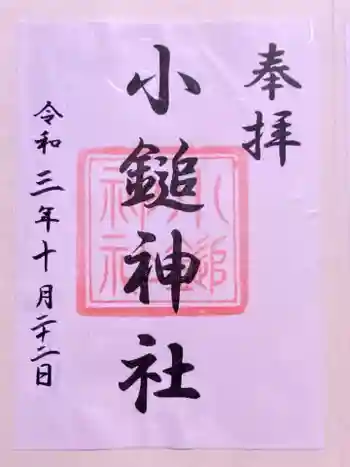 奉拝
小鎚神社
小鎚
神社
令和三年十月二十二日